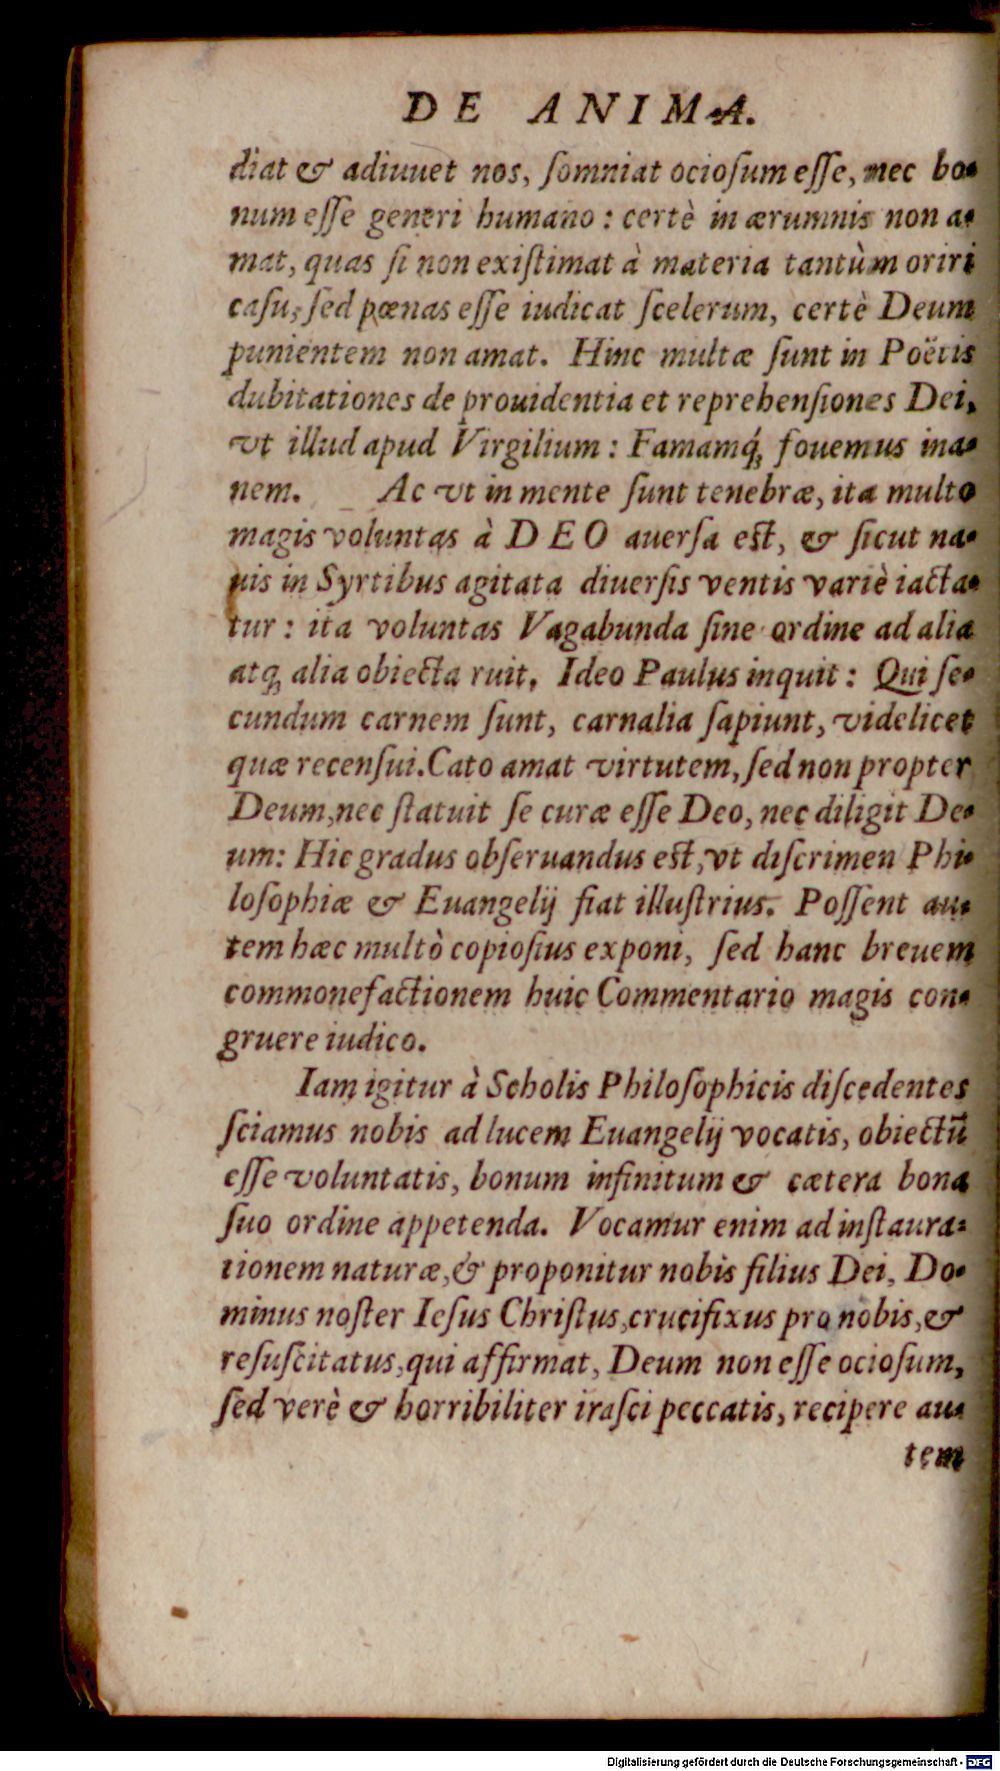 DE ANIMA.
diat & adiuuet nos, ſomniat ocioſum eſſe, nec bo-
num eſſe generi humano : certè in ærumnis non a-
mat, quas ſi non exiſtimat à materia tantùm oriri
caſu, ſed pœnas eſſe iudicat ſcelerum, certè Deum
punientem non amat. Hinc multæ ſunt in Poëtis
dubitationes de prouidentia et reprehenſiones Dei,
vt illud apud Virgilium : Famamq́; fouemus ina-
nem. Ac vt in mente ſunt tenebræ, ita multo
magis voluntas à DEO auerſa eſt, & ſicut na-
uis in Syrtibus agitata diuerſis ventis variè iacta-
tur : ita voluntas Vagabunda ſine ordine ad alia
atq; alia obiecta ruit. Ideo Paulus inquit : Qui ſe-
cundum carnem ſunt, carnalia ſapiunt, videlicet
quæ recenſui. Cato amat virtutem, ſed non propter
Deum, nec ſtatuit ſe curæ eſſe Deo, nec diligit De-
um: Hic gradus obſeruandus eſt, vt diſcrimen Phi-
loſophiæ & Euangelij fiat illuſtrius. Poſſent au-
tem hæc multò copioſius exponi, ſed hanc breuem
commonefactionem huic Commentario magis con-
gruere iudico.
Iam igitur à Scholis Philoſophicis diſcedentes
ſciamus nobis ad lucem Euangelij vocatis, obiectū
eſſe voluntatis, bonum infinitum & cætera bona
ſuo ordine appetenda. Vocamur enim ad inſtaura-
tionem naturæ, & proponitur nobis filius Dei, Do-
minus noſter Ieſus Chriſtus, crucifixus pro nobis, &
reſuſcitatus, qui affirmat, Deum non eſſe ocioſum,
ſed verè & horribiliter iraſci peccatis, recipere au-
tem
Digitalisierung gefördert durch die Deutsche Forschungsgemeinschaft - DFG